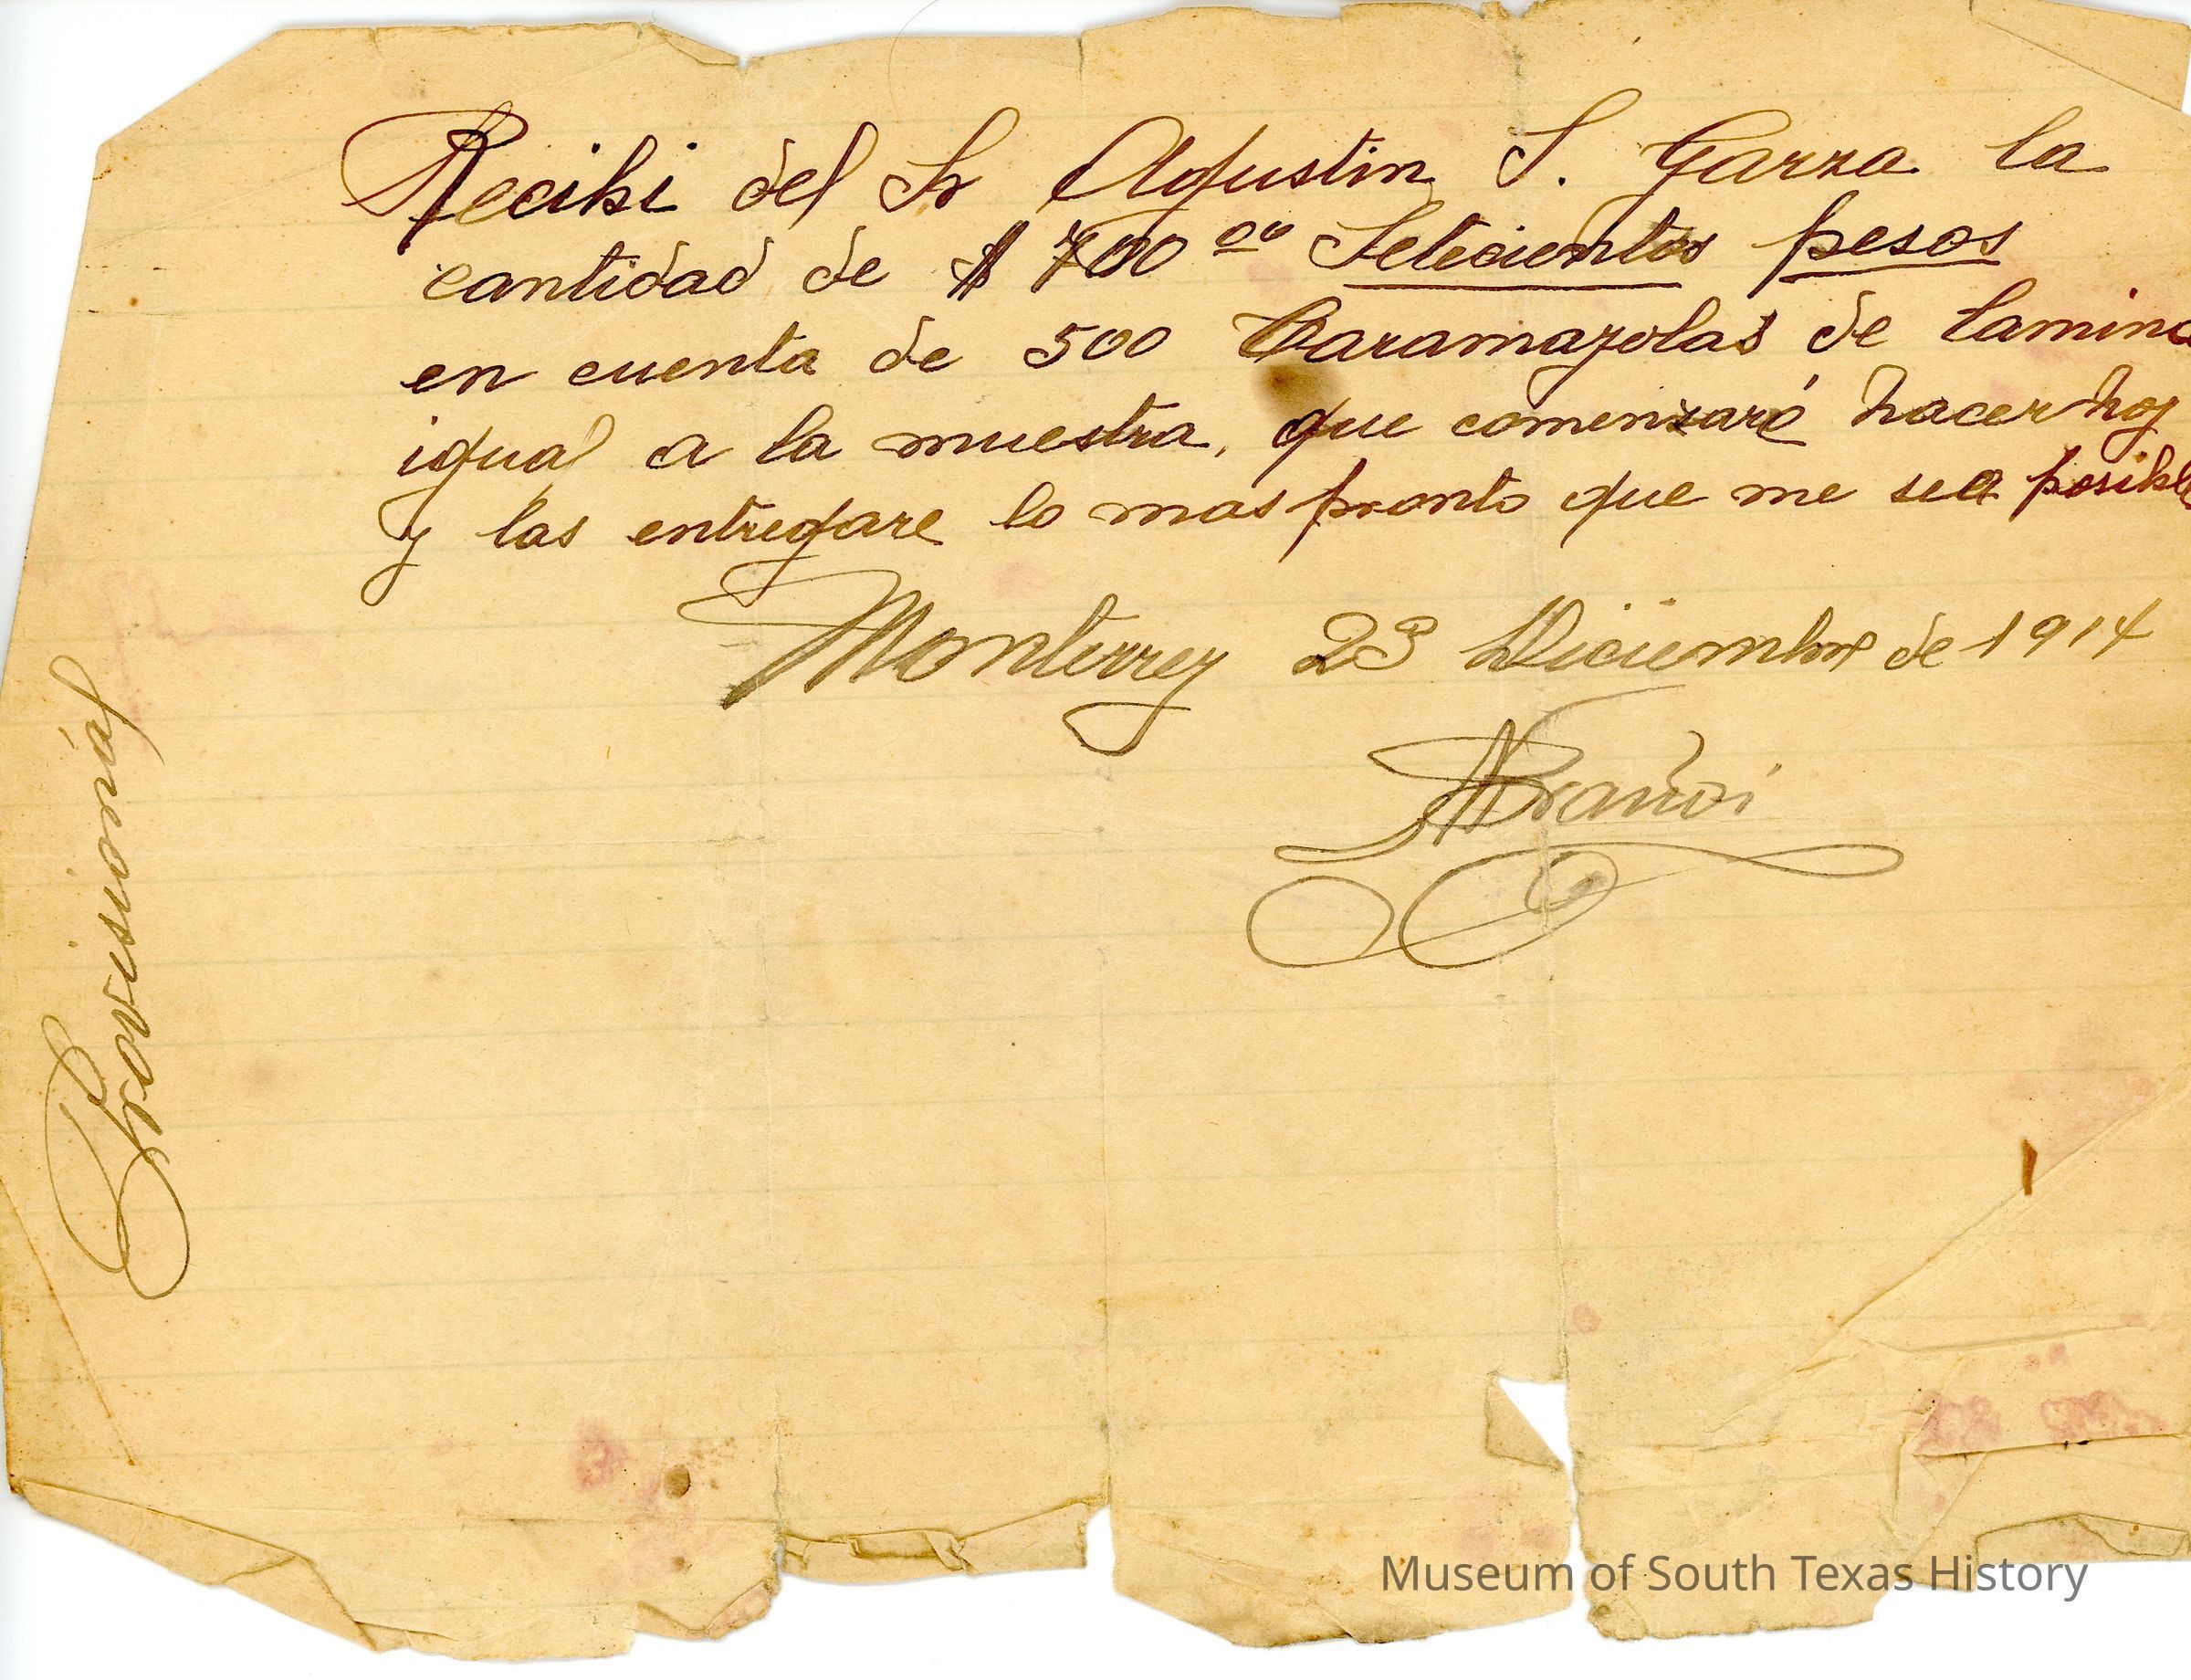 Recibi del Sr Agustin S. Garza la
cantidad de $ 700 00 Setecientos pesos
en cuenta de 500 Caramayolas de lamina
igual a la muestra, que comenzaré hacer hoy
y las entregare lo mas pronto que me sea posible
Monterrey 23 Diciembre de 1914
Provisional
Museum of South Texas History